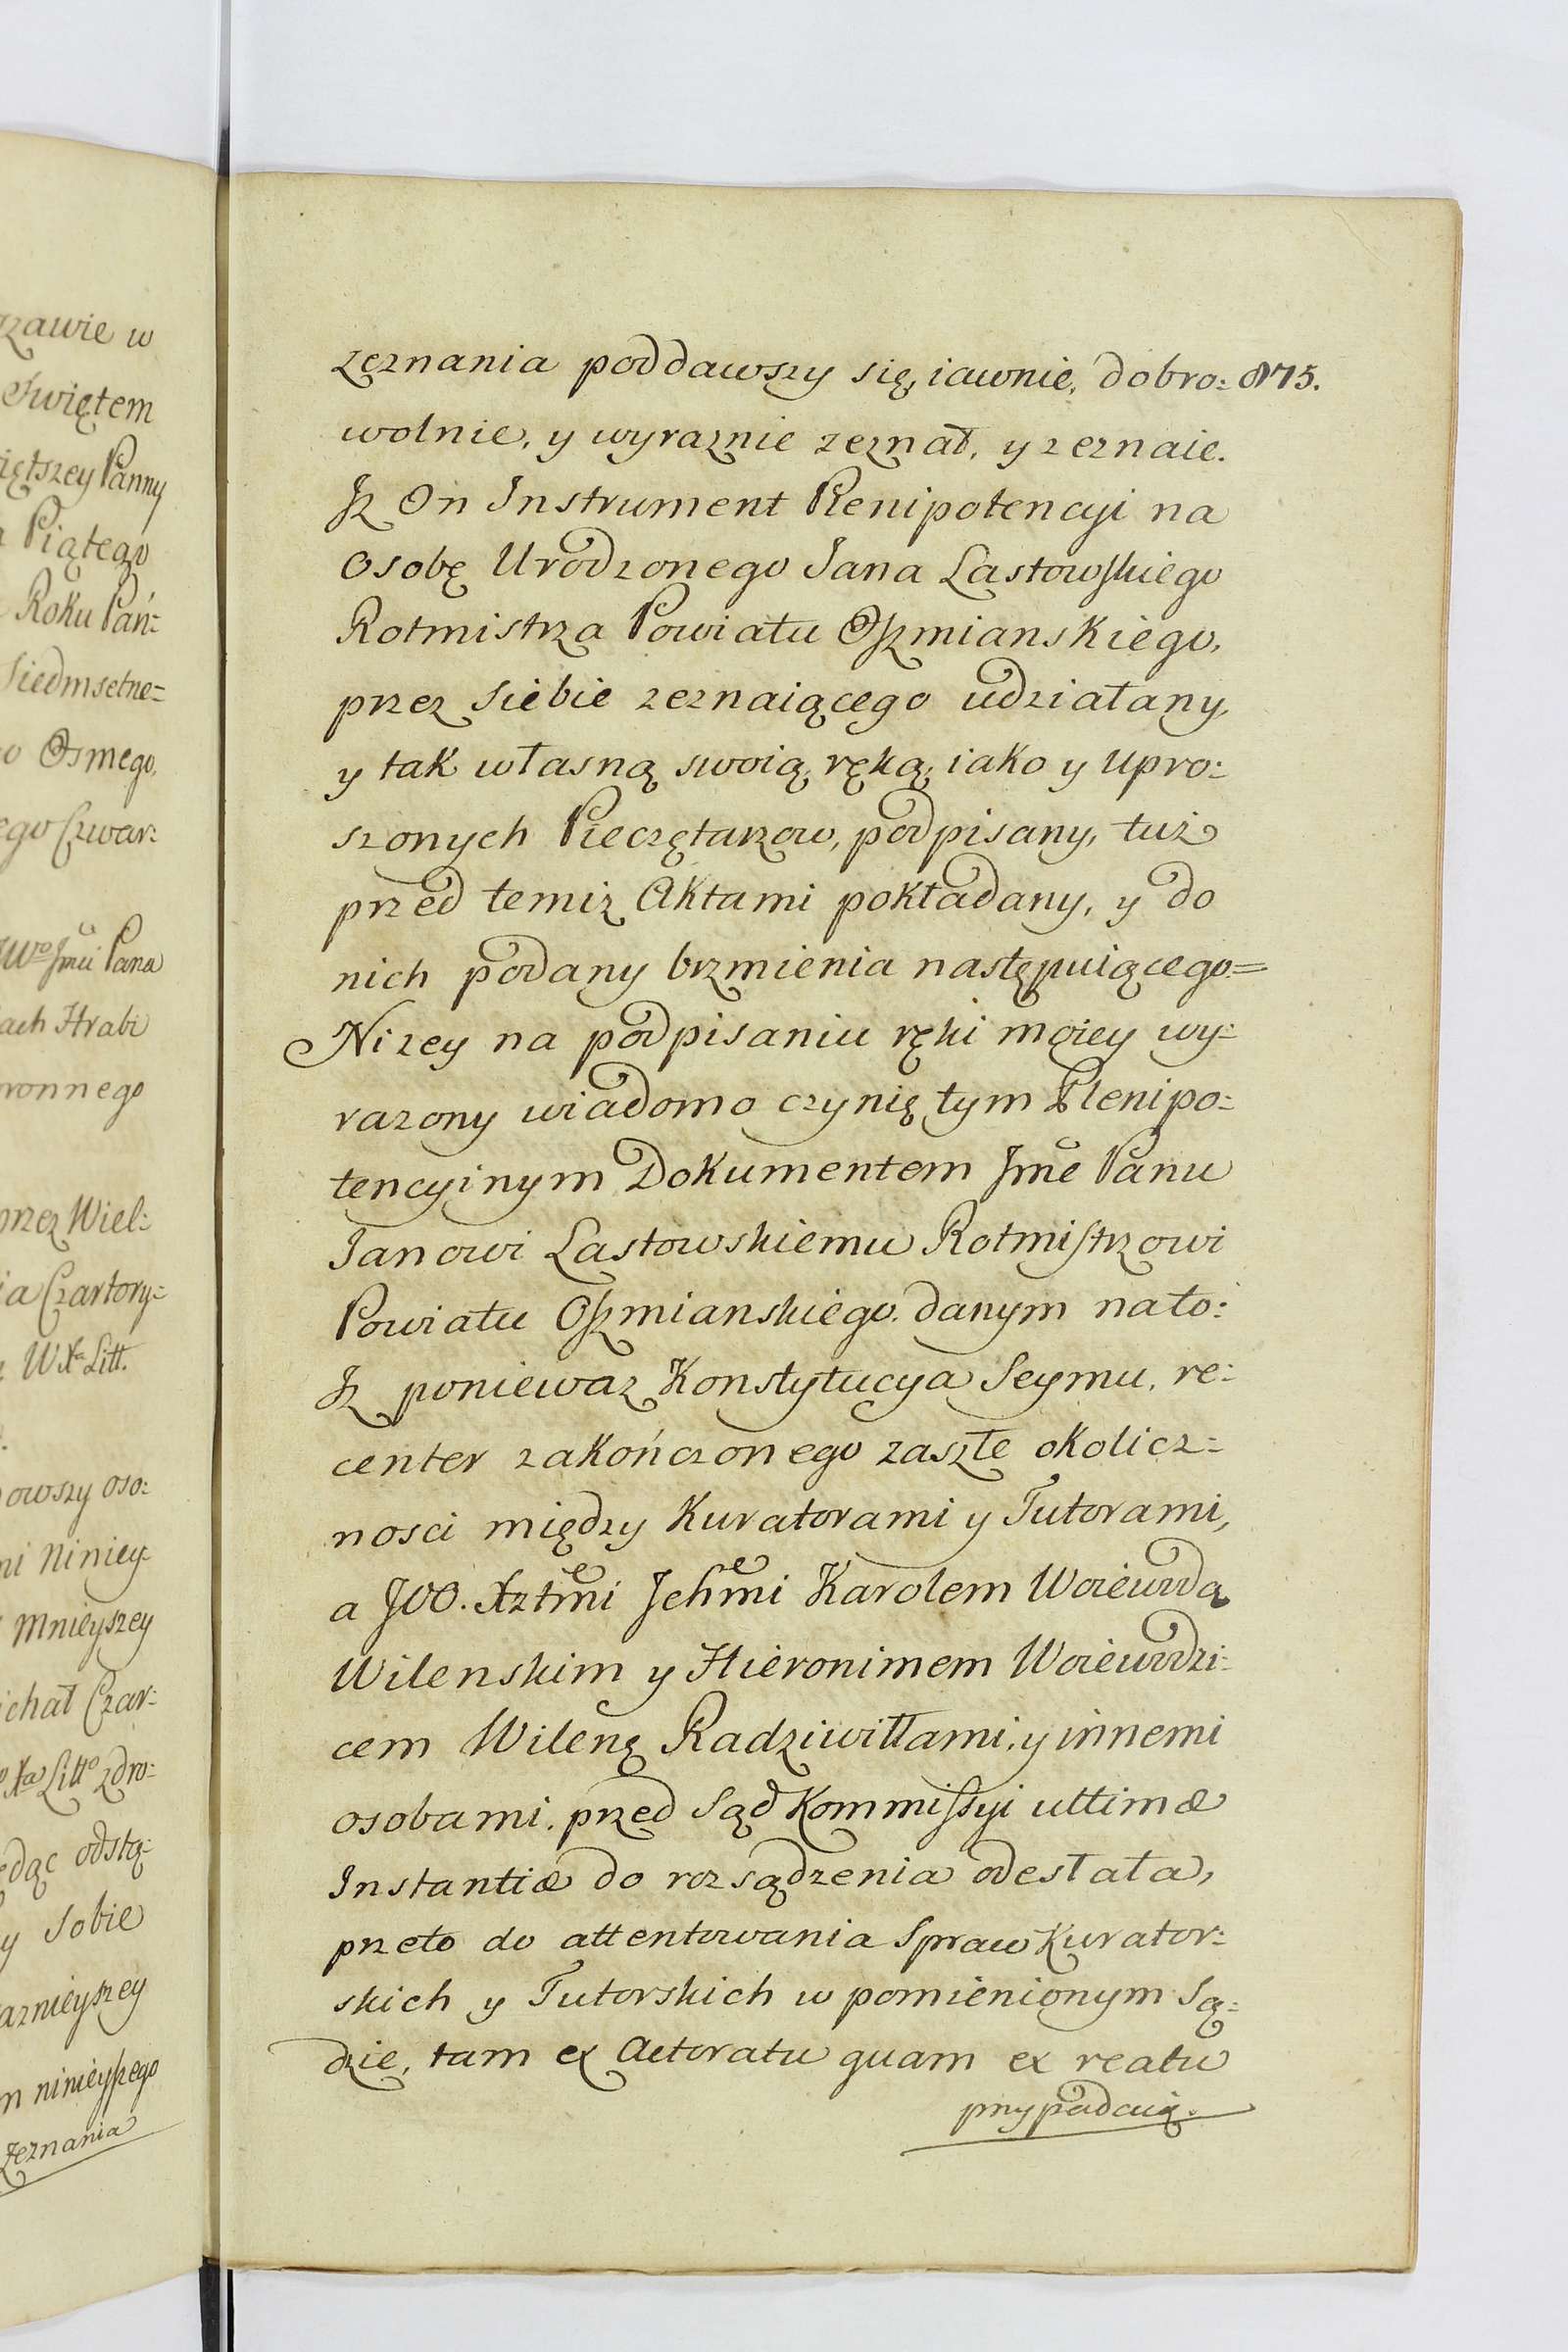 rzawie w
Swiętem
iętszey Panny
Piątego
Roku Pań:
Siedmsetne=
o Osmego,
ego Czwar:
JWo Jmći Pana
ach Hrabi
ronnego
przez Wiel:
ia Czartory=
WXa Litt.
owszy oso:
mi Niniey
Mnieyszey
ichał Czar:
Xa Litto zdro:
ędąc odstą:
y Sobie
arnieyszey
m ninieyszego
zeznania
zeznania poddawszy się, iawnie, dobro: 875.
wolnie, y wyraznie zeznał, y zeznaie.
Jż On Instrument Plenipotencyi na
Osobę Urodzonego Jana Lastowskiego
Rotmistrza Powiatu Oszmianskiego,
przez Siebie zeznaiącego udziałany,
y tak własną swoią, ręką, iako y Upro:
szonych Pieczętarzow, podpisany, tuż
przed temiż Aktami pokładany, y do
nich podany brzmienia następuiącego=
Niżey na podpisaniu ręki moiey wy=
rażony wiadomo czynię tym Plenipo=
tencyinym Dokumentem Jmć Panu
Janowi Lastowskiemu Rotmistrzowi
Powiatu Oszmianskiego, danym na to:
Jż ponieważ Konstytucya Seymu, re:
center zakończonego zaszłe okolicz=
nosci między Kuratorami y Tutorami,
a JOO. Xztmi Jchmi Karolem Woiewodą
Wilenskim y Hieronimem Woiewodzi:
cem Wileną Radziwiłłami, y innemi
osobami, przed Sąd Kommissyi ultimæ
Instantiæ do rozsądzenia odesłała,
przeto do attentowania Spraw Kurator:
skich y Tutorskich w pomienionym Są=
dzie, tam ex Actoratu quam ex reatu
przypadaią.